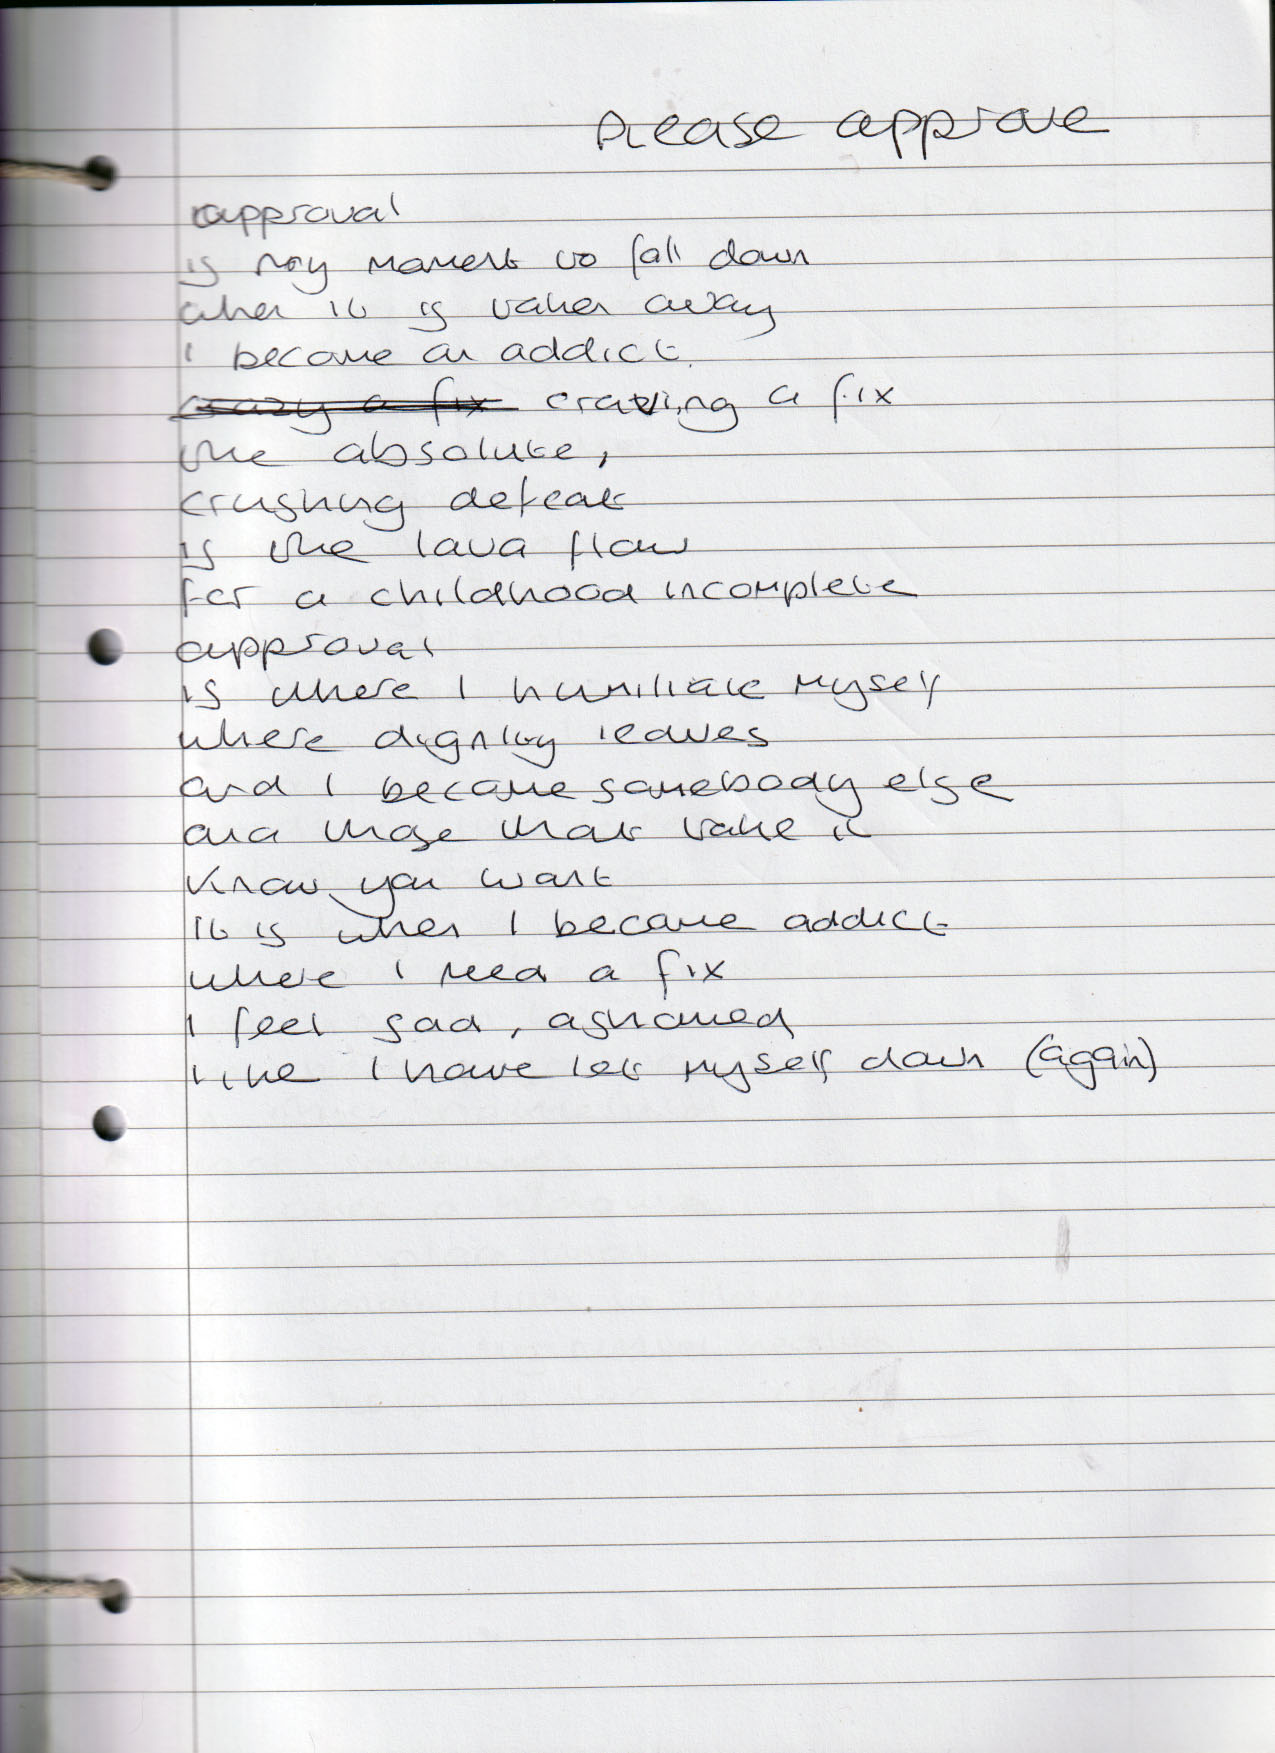 Please approve
approval
is my moment to fall down
when it is taken away
I become an addict.
crazy a fix craving a fix
the absolute,
crushing defeat
is the lava flow
for a childhood incomplete
approval
is where I humiliate myself
where dignity leaves
and I become somebody else
and those that take it
know you want
it is when I become addict
where I need a fix
I feel sad, ashamed
like I have let myself down (again)